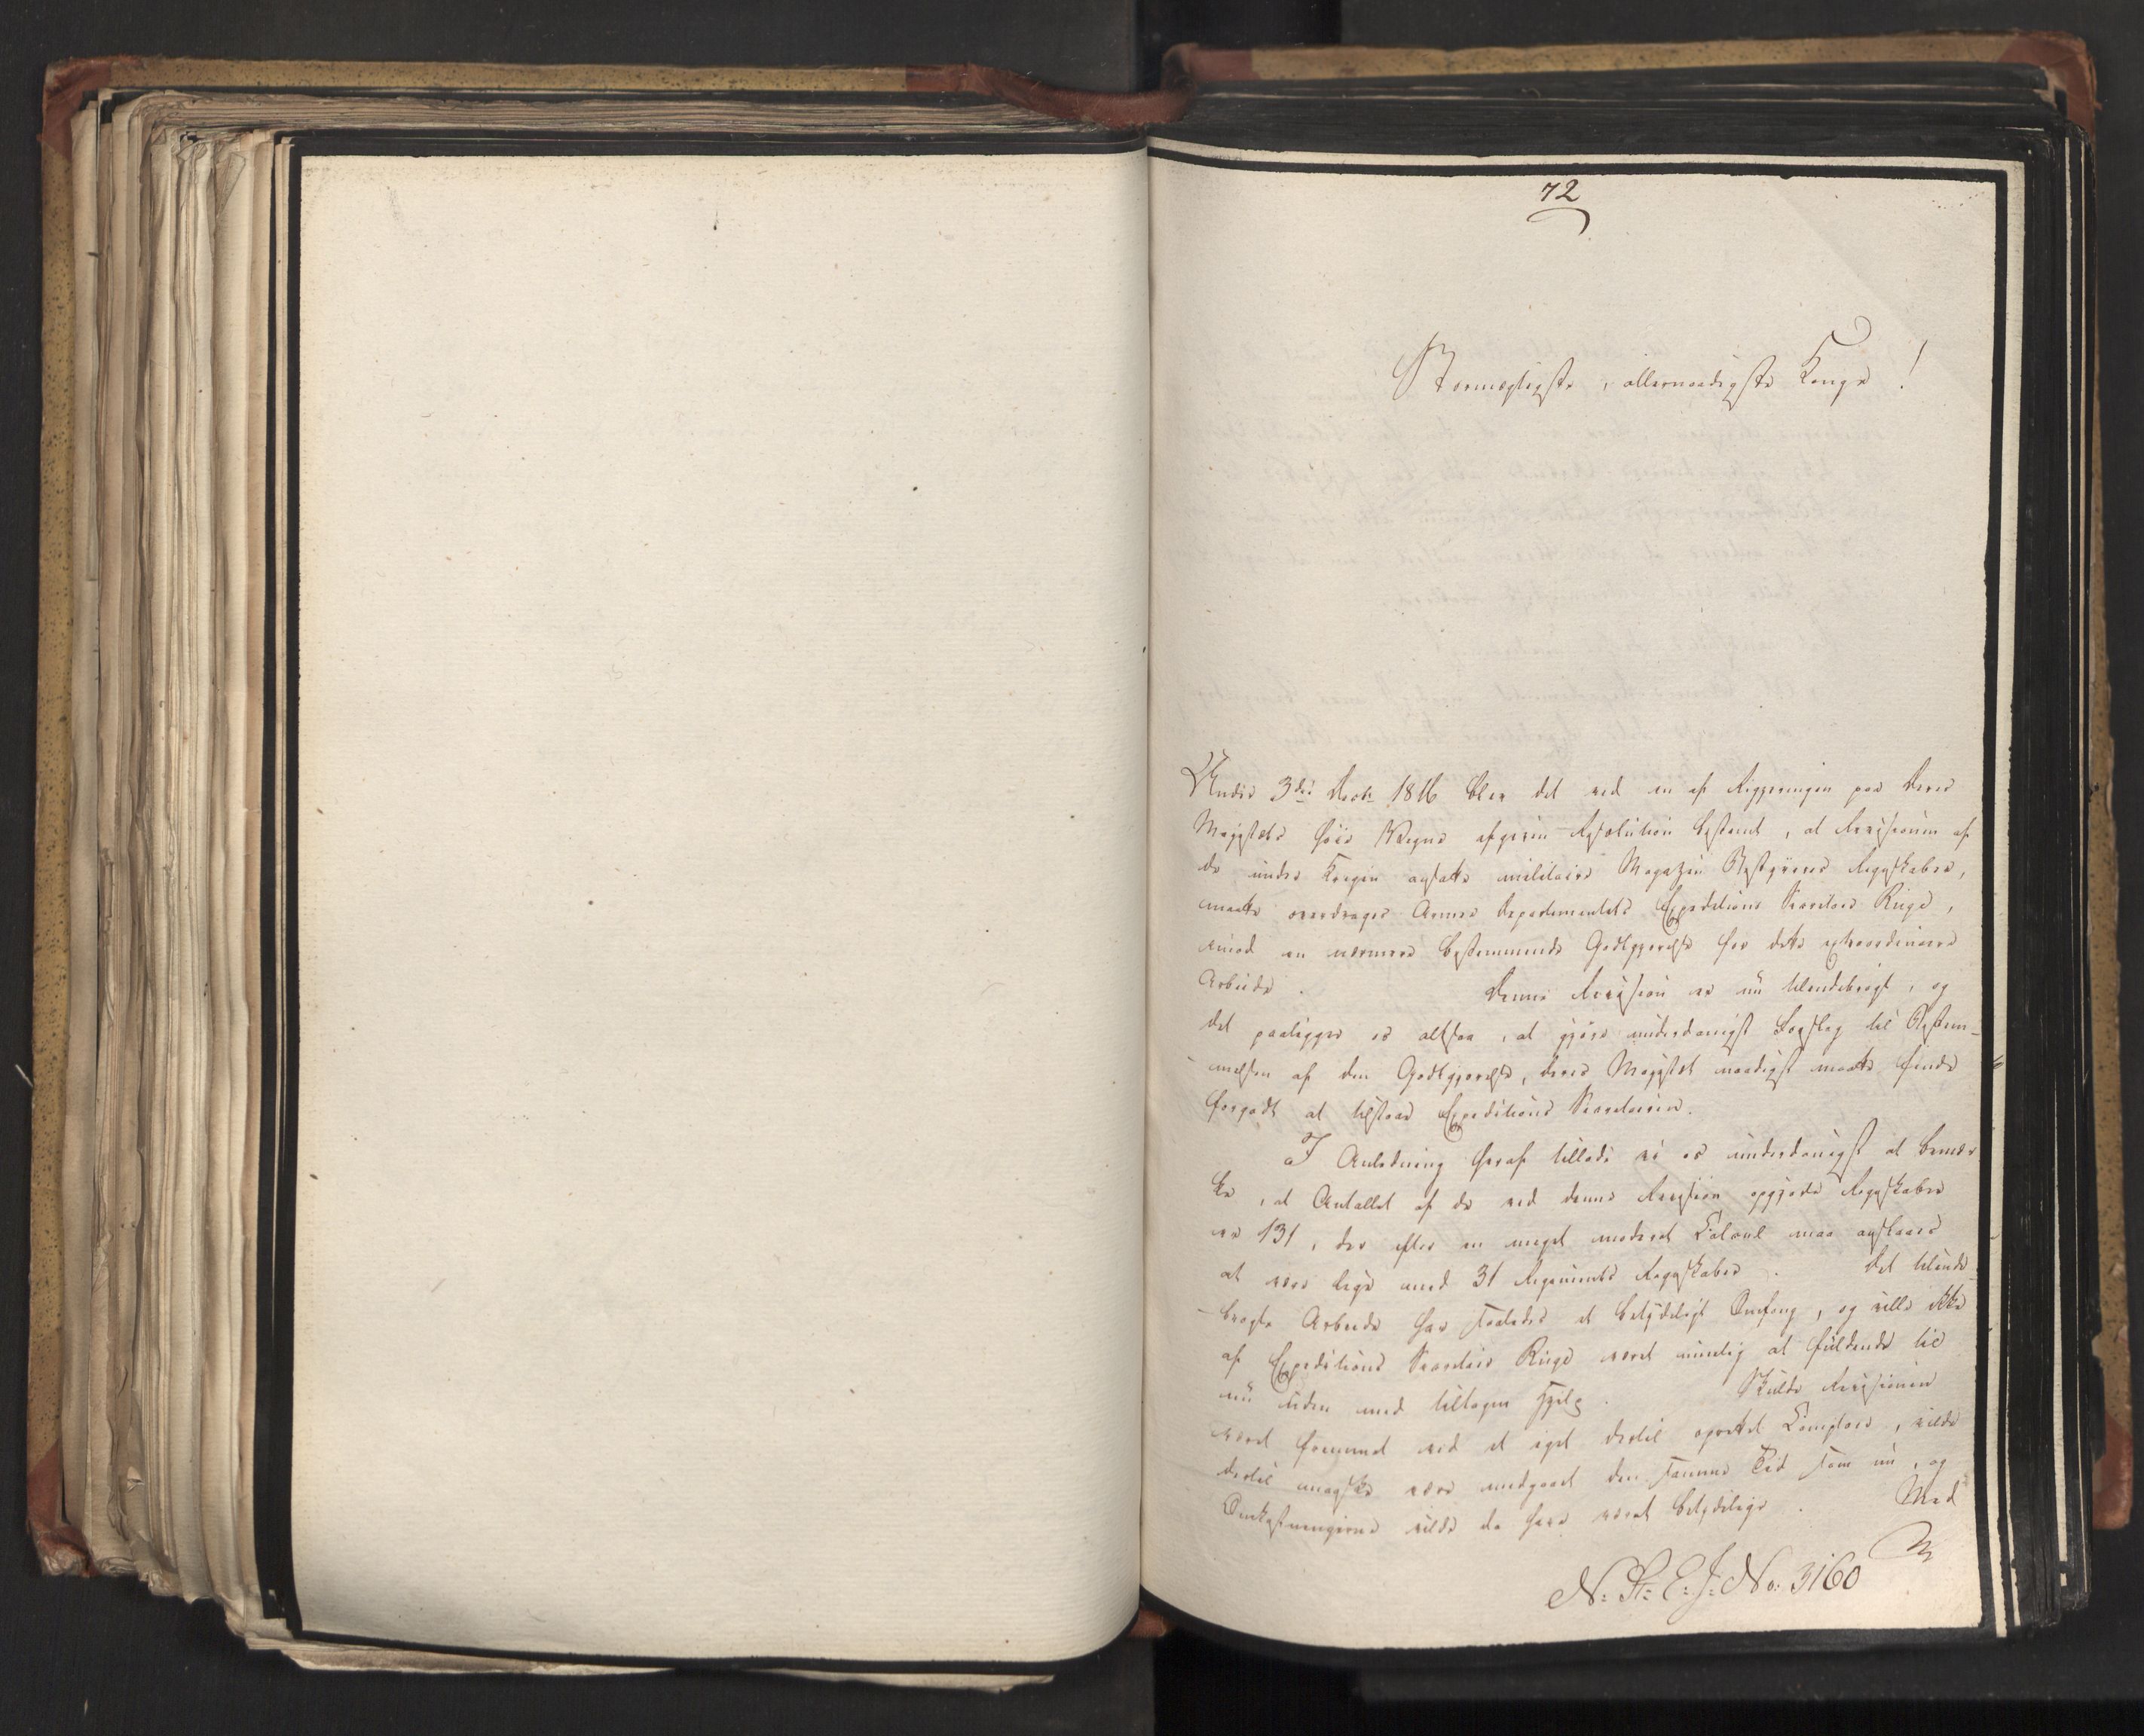 72
Stormægtigste, allernaadigste Konge!
Under 3die Decbr 1816 blev det ved en af Regjeringen paa Deres
Majestæts høie Vegne afgiven Resolution bestemt, at Revisionen af
de under Krigen ansatte militaire Magazin Bestyreres Regnskaber,
maatte overdrages Armee Departementets Expeditions Secretair Ringe,
imod en nærmere bestemmende Godtgjørelse for dette extraordinaire
Arbeide. Denne Revision er nu tilendebragt, og
det paaligger os altsaa, at gjøre underdanigst Forslag til Bestem-
-melsen af den Godtgjørelse, Deres Majestæt naadigst maatte finde
forgodt at tilstaae Expeditions Secretairen.
I Anledning heraf tillade vi os underdanigst at bemær
ke, at Antallet af de ved denne Revision opgjorte Regnskaber
er 131, der efter en meget moderat Calcul maa ansees
at være lige med 31 Regiments Regnskaber. Det tilende-
-bragte Arbeide har saaledes et betydeligt Omfang, og ville ikke
af Expeditions Secretair Ringe været muelig at fuldende til
nu uden med tiltagen Hjelp. Skulde Revisionen
været fremmet ved et eget dertil oprettet Comptoir, vilde
dertil maaskee være medgaaet den samme Tid som nu, og
Omkostningerne vilde da have været betydelige. Med
N: St: E: J: No: 3160